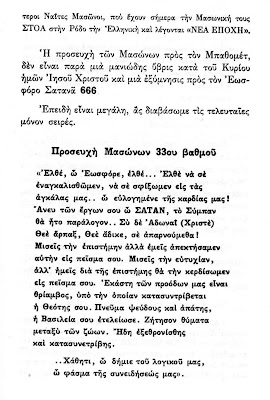 τεροι Ναΐτες Μασῶνοι, πού ἔχουν σήμερα τήν Μασωνική τους
ΣΤΟΑ στήν Ρόδο τήν Ἑλληνική καί λέγονται «ΝΕΑ ΕΠΟΧΗ».
Ἡ προσευχή τῶν Μασώνων πρός τόν Μπαθομέτ,
δέν εἶναι παρά μιά μανιώδης ὕβρις κατά τοῦ Κυρίου
ἡμῶν Ἰησοῦ Χριστοῦ καί μιά ἐξύμνησις πρός τόν Ἑωσ-
φόρο Σατανᾶ 666
Ἐπειδή εἶναι μεγάλη, ἄς διαβάσωμε τίς τελευταῖες
μόνον σειρές.
Προσευχή Μασώνων 33ου βαθμοῦ
«Ἐλθέ, ὦ Ἑωσφόρε, ἐλθέ... Ἐλθέ νά σέ
ἐναγκαλισθῶμεν, νά σέ σφίξωμεν εἰς τάς
ἀγκάλας μας.. ὦ εὐλογημένε τῆς καρδίας μας!
Ἄνευ τῶν ἔργων σου ὦ ΣΑΤΑΝ, τό Σύμπαν
θά ἦτο παράλογον.. Σύ δέ Ἀδωναΐ (Χριστέ)
Θεέ ἄρπαξ, Θεέ ἄδικε, σέ ἀπαρνούμεθα!
Μισεῖς τήν ἐπιστήμην ἀλλά ἐμεῖς ἀπεκτήσαμεν
αὐτήν εἰς πεῖσμα σου. Μισεῖς τήν εὐτυχίαν,
ἀλλ' ἡμεῖς διά τῆς ἐπιστήμης θά τήν κερδίσωμεν
εἰς πεῖσμα σου. Ἑκάστη τῶν προόδων μας εἶναι
θρίαμβος, ὑπό τήν ὁποίαν κατασυντρίβεται
ἡ Θεότης σου. Πνεῦμα ψεύδους καί ἀπάτης,
ἡ Βασιλεία σου ἐτελείωσε. Ζήτησον θύματα
μεταξύ τῶν ζώων. Ἤδη ἐξεθρονίσθης
καί κατασυνετρίβης.
..Χάθητι, ὦ δήμιε τοῦ λογικοῦ μας,
ὦ φάσμα τῆς συνειδήσεώς μας».